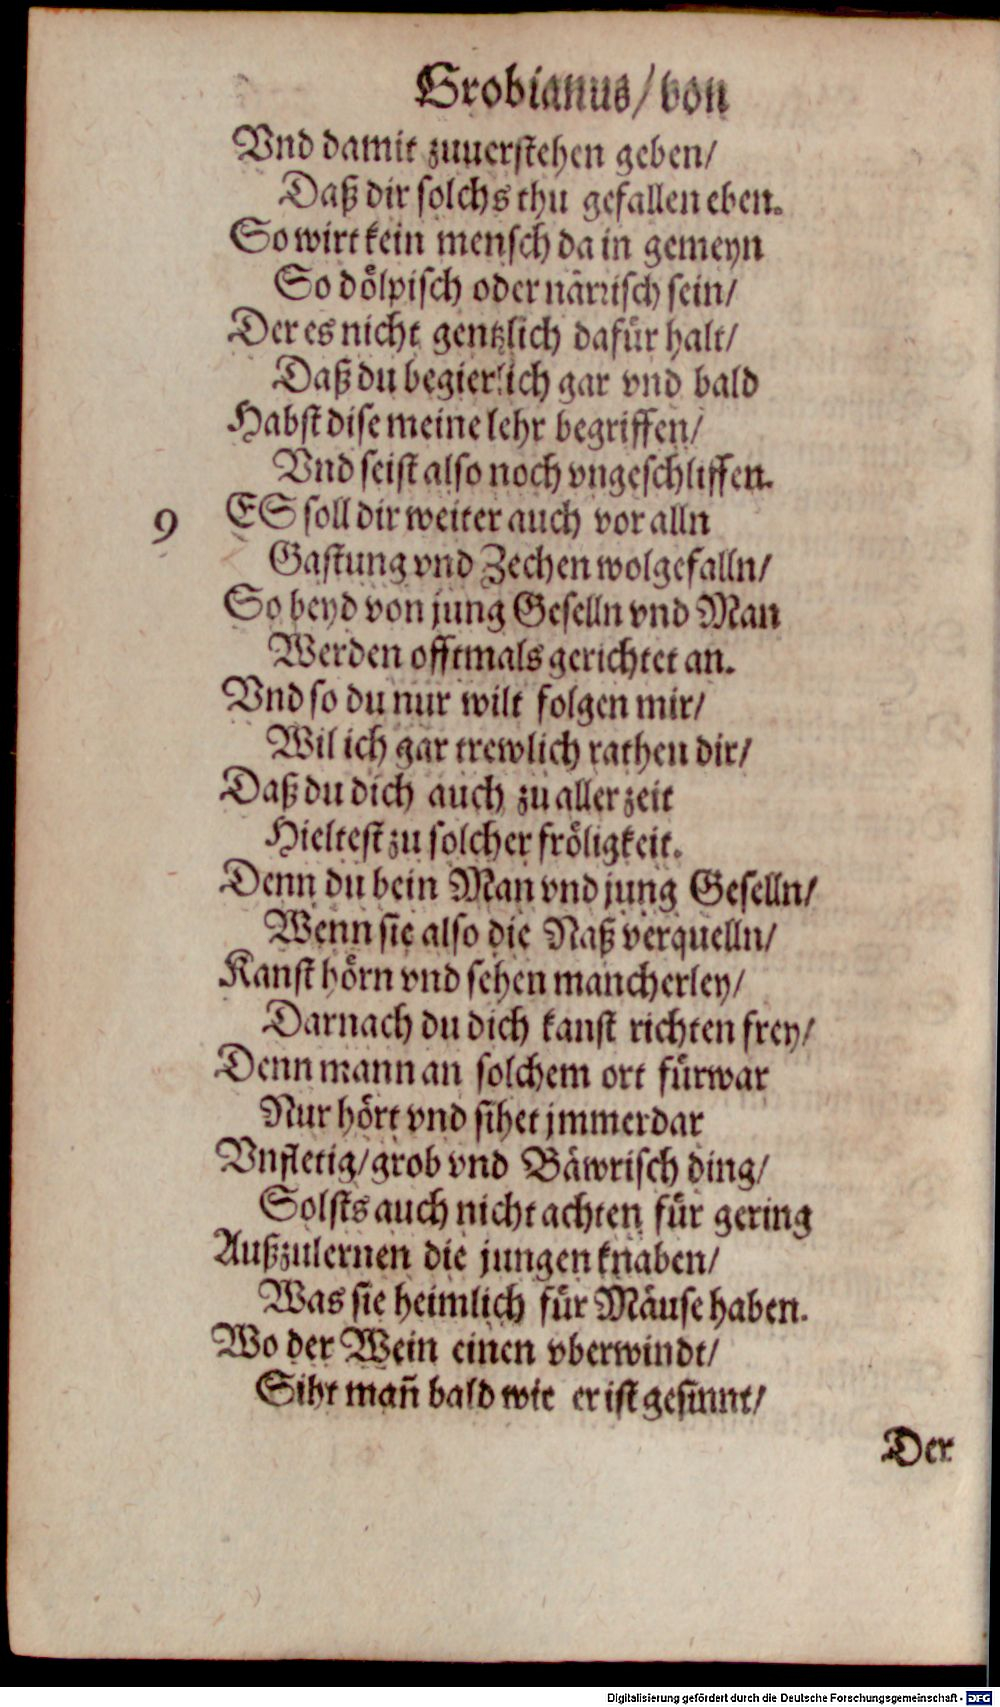 Grobianus/ von
Vnd damit zuuerstehen geben/
Daß dir solchs thu gefallen eben.
So wirt kein mensch da in gemeyn
So dölpisch oder närrisch sein/
Der es nicht gentzlich dafür halt/
Daß du begierlich gar vnd bald
Habst dise meine lehr begriffen/
Vnd seist also noch vngeschliffen.
9 ES soll dir weiter auch vor alln
Gastung vnd Zechen wolgefalln/
So beyd von jung Geselln vnd Man
Werden offtmals gerichtet an.
Vnd so du nur wilt folgen mir/
Wil ich gar trewlich rathen dir/
Daß du dich auch zu aller zeit
Hieltest zu solcher fröligkeit.
Denn du bein Man vnd jung Geselln/
Wenn sie also die Naß verquelln/
Kanst hörn vnd sehen mancherley/
Darnach du dich kanst richten frey/
Denn mann an solchem ort fürwar
Nur hört vnd sihet jmmerdar
Vnfletig/ grob vnd Bäwrisch ding/
Solsts auch nicht achten für gering
Außzulernen die jungen knaben/
Was sie heimlich für Mäuse haben.
Wo der Wein einen vberwindt/
Siht mañ bald wie er ist gesinnt/
Der
Digitalisierung gefördert durch die Deutsche Forschungsgemeinschaft - DFG